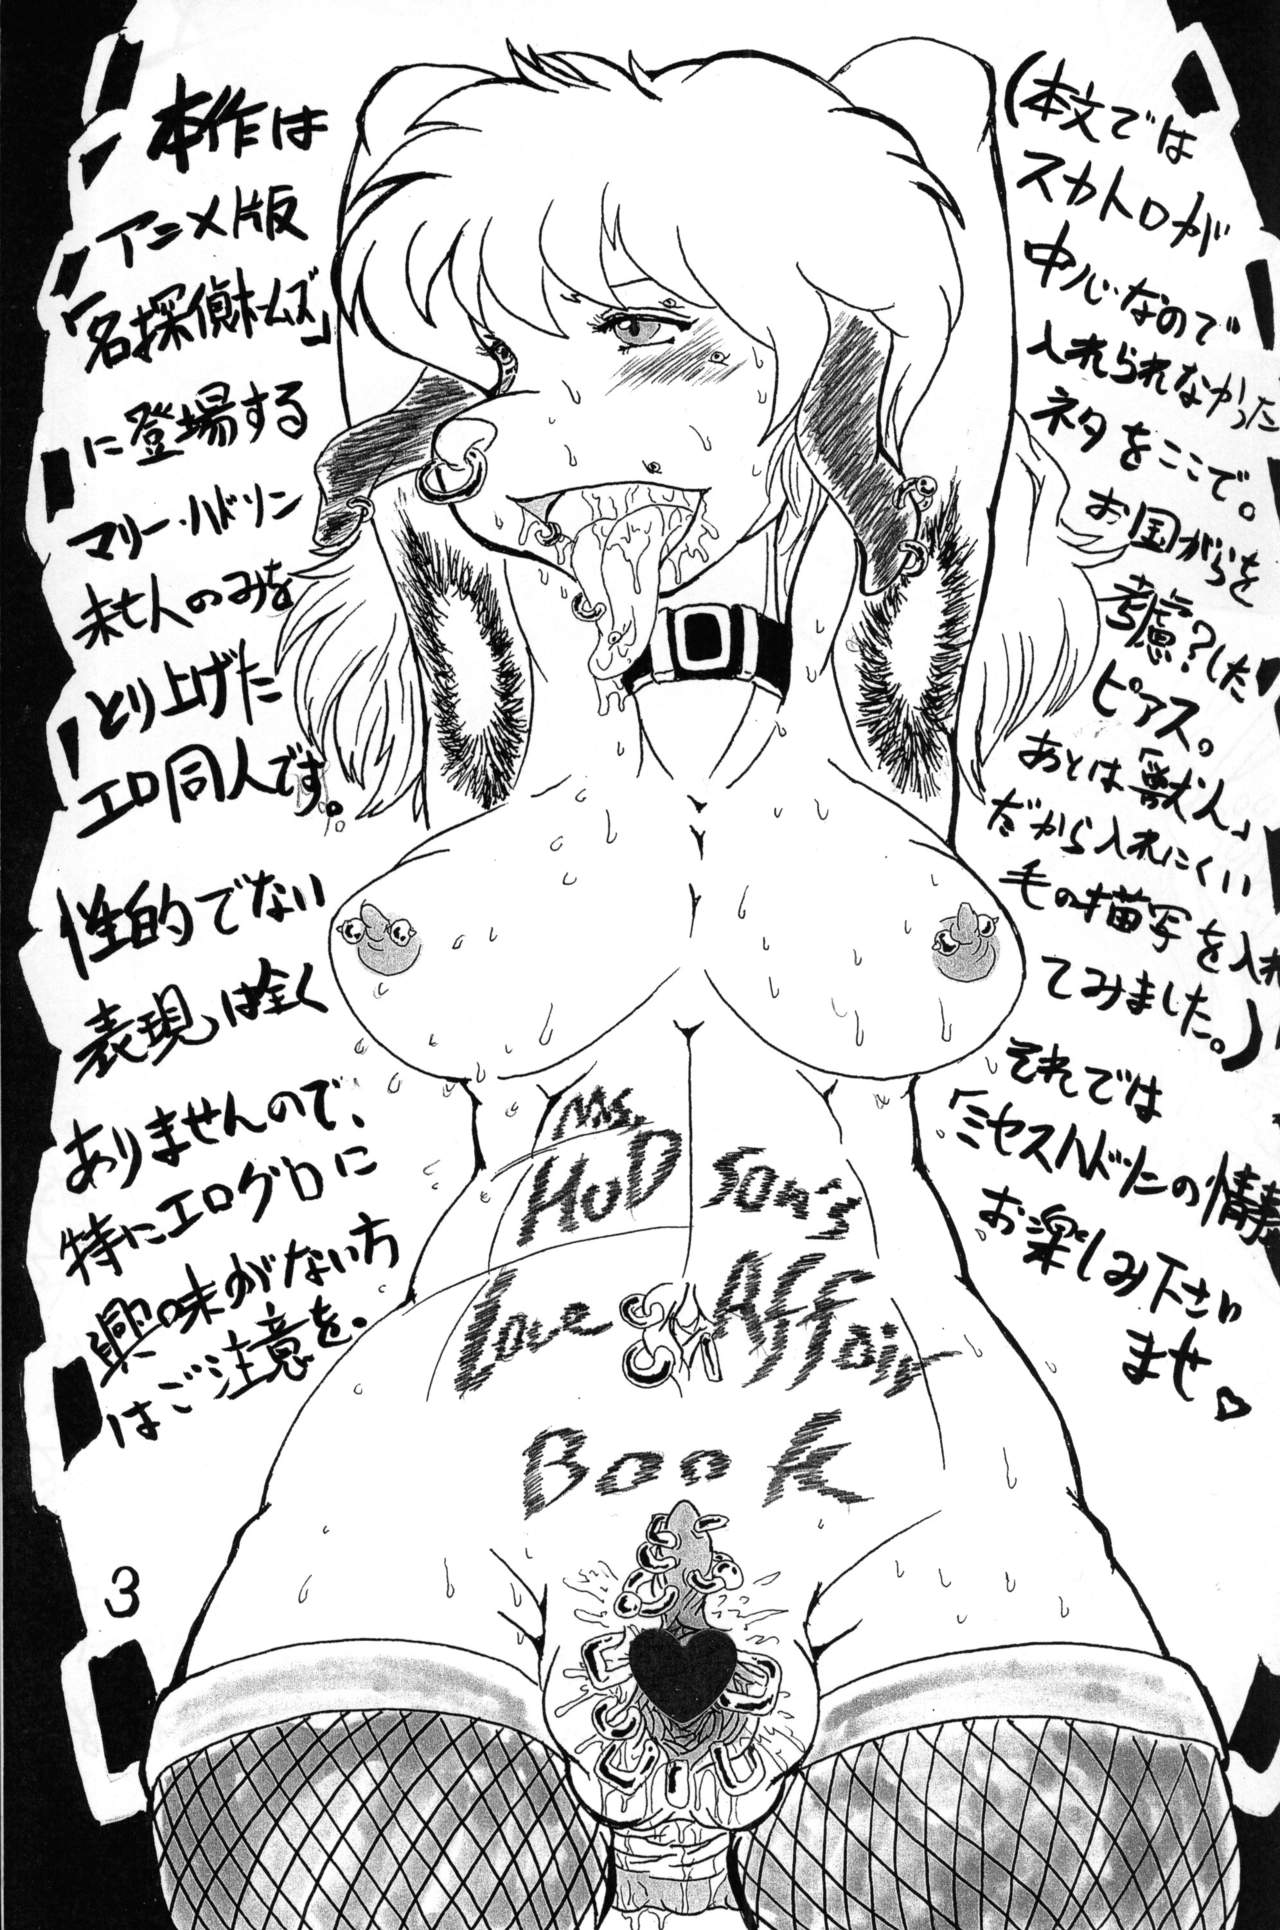 (本文では
スカトロが
中心なので
入れられなかった
ネタをここで。
お国がらを
考慮?した
ピアス。
あとは「獣人」
だから入れにくい
毛の描写を入れ
てみました。)
それでは
「ミセスハドソンの情事
お楽しみ下さい
ませ♡
本作は
アニメ版
「名探偵ホームズ」
に登場する
マリー・ハドソン
未亡人のみを
とり上げた
エロ同人です。
性的でない
表現は全く
ありませんので、
特にエログロに
興味がない方
はご注意を。
Ms.
HuDson's
Love Affair
Book
3